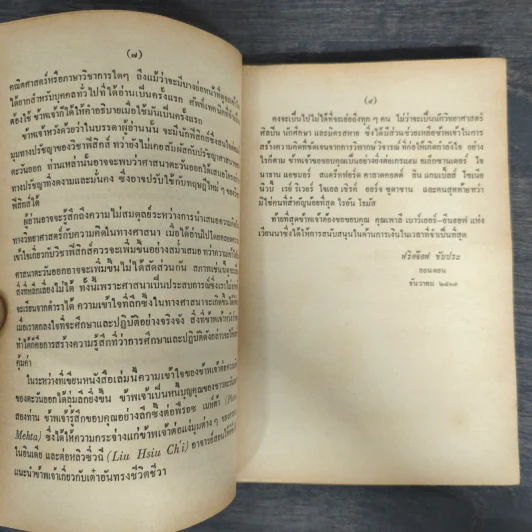 (๗)
คณิตศาสตร์หรือภาษาวิชาการใดๆ ถึงแม้ว่าจะมีบางย่อหน้าที่
ได้ยากสำหรับบุคคลทั่วไปที่ได้อ่านเป็นครั้งแรก ศัพท์เทคนิค
ต้องใช้ ข้าพเจ้าก็ได้ให้คำอธิบายเมื่อใช้มันเป็นครั้งแรก
ข้าพเจ้าหวังด้วยว่าในบรรดาผู้อ่านนั้น จะมีนักฟิสิกส์ซึ่งสนใจ
มุมทางปรัชญาของวิชาฟิสิกส์ ทว่ายังไม่เคยสัมผัสกับปรัชญาศาสนา
ตะวันออก ท่านเหล่านั้นอาจจะพบว่าศาสนาตะวันออกได้เสนอโครง
ทางปรัชญาที่งดงามและมั่นคง ซึ่งอาจปรับใช้กับทฤษฎีใหม่ ๆ ของ
ฟิสิกส์ได้
ผู้อ่านอาจจะรู้สึกถึงความไม่สมดุลย์ระหว่างการนำเสนอความคิด
ทางวิทยาศาสตร์กับความคิดในทางศาสนา เมื่อได้อ่านไปโดยตลอด
เข้าใจเกี่ยวกับวิชาฟิสิกส์ควรจะเพิ่มขึ้นอย่างสม่ำเสมอ ทว่าความ
ศาสนาตะวันออกอาจจะเพิ่มขึ้นไม่ได้สัดส่วนกัน สภาพเช่นนี้
สิ่งที่หลีกเลี่ยงไม่ได้ ทั้งนี้เพราะศาสนาเป็นประสบการณ์ซึ่งเรา
จะอ่านจากตำราได้ ความเข้าใจที่ลึกซึ้งในทางศาสนาจะเกิดขึ้น
เมื่อเราตกลงใจที่จะศึกษาและปฏิบัติอย่างจริงจัง สิ่งที่ข้าพเจ้า
ทำได้ก็คือการสร้างความรู้สึกที่ว่าการศึกษาและปฏิบัติดังกล่าว
คุ้มค่า
ในระหว่างที่เขียนหนังสือเล่มนี้ความเข้าใจของข้าพเจ้าต่อความ
ของตะวันออกได้ลุ่มลึกยิ่งขึ้น ข้าพเจ้าเป็นหนี้บุญคุณของชาวตะวันออก
สองท่าน ข้าพเจ้ารู้สึกขอบคุณอย่างลึกซึ้งต่อฟิรอซ เมห์ต้า
Mehta) ซึ่งได้ให้ความกระจ่างแก่ข้าพเจ้าต่อแง่มุมต่าง ๆ
ในอินเดีย และต่อหลิวซิ่วฉี (Liu Hsiu Ch'i) อาจารย์สอน
แนะนำข้าพเจ้าเกี่ยวกับเต๋าอันทรงชีวิตชีวา
(๘)
คงจะเป็นไปไม่ได้ที่จะเอ่ยถึงทุก ๆ คน ไม่ว่าจะเป็นนักวิทยาศาสตร์
ศิลปิน นักศึกษา และมิตรสหาย ซึ่งได้มีส่วนช่วยเหลือข้าพเจ้าในการ
สร้างความคิดขึ้นจากการวิพากษ์ วิจารณ์ ถกเถียงโต้แย้งอย่างจริงใจ อย่าง
ไรก็ตาม ข้าพเจ้าขอขอบคุณเป็นอย่างยิ่งต่อเกรแฮม อเล็กซานเดอร์ โจ
นาธาน แอชมอร์ สแตร็ทฟอร์ด คาลเดคอตต์ ลิน แกมเบลส์ โซเนย
นิวบี้ เรย์ ริเวอร์ โจเอล เชิร์ค จอร์จ ซูดาซาน และคนสุดท้ายทว่า
มิใช่คนที่สำคัญน้อยที่สุด ไรอัน โธมัส
ท้ายที่สุดข้าพเจ้าต้องขอขอบคุณ คุณเพาลี เบาว์เออร์-ยีนฮอฟ แห่ง
เวียนนาซึ่งได้ให้การสนับสนุนในด้านการเงินในเวลาที่จำเป็นที่สุด
ฟริตจ๊อฟ คาปร้า
ลอนดอน
ธันวาคม ๒๕๑๗